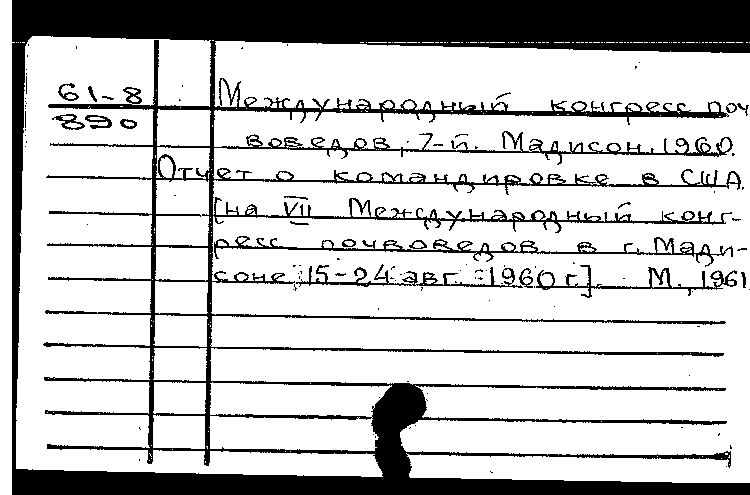 61-8 Международный конгресс поч
890
воведов, 7-й. Мадисон. 1960.
Отчет о командировке в США
[на VII Международный конг-
ресс почвоведов в г. Мади-
соне, 15-24 авг. 1960 г.] М., 1961